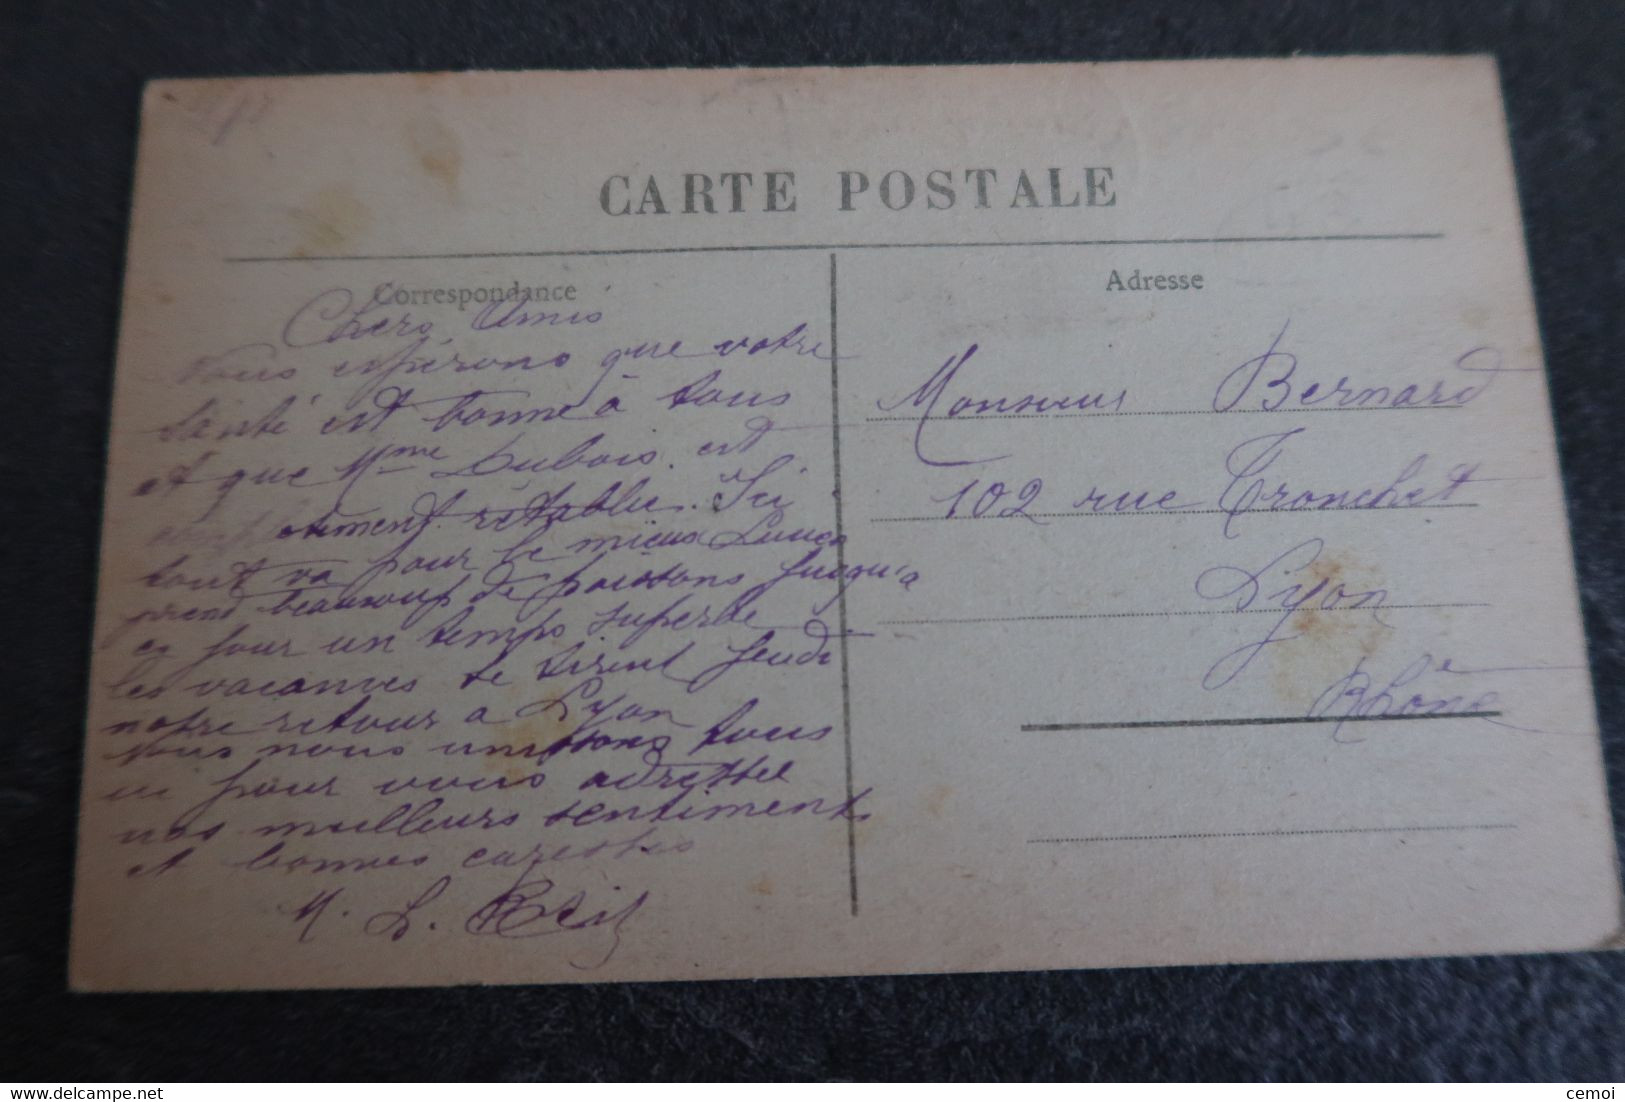 CARTE POSTALE
Correspondance
Chers Amis
Nous espérons que votre
santé est bonne à tous
et que Mme Dubois est
complètement rétablie. Ici
tout va pour le mieux
prend beaucoup de poissons jusqu'a
ce jour un temps superbe
les vacances se tirent jeudi
notre retour a Lyon
Nous nous unissons tous
ici pour vous adresser
nos meilleurs sentiments
et bonnes caresses
M. L.
Adresse
Monsieur Bernard
102 rue Tronchet
Lyon
Rhône
delcampe.net
cemoi